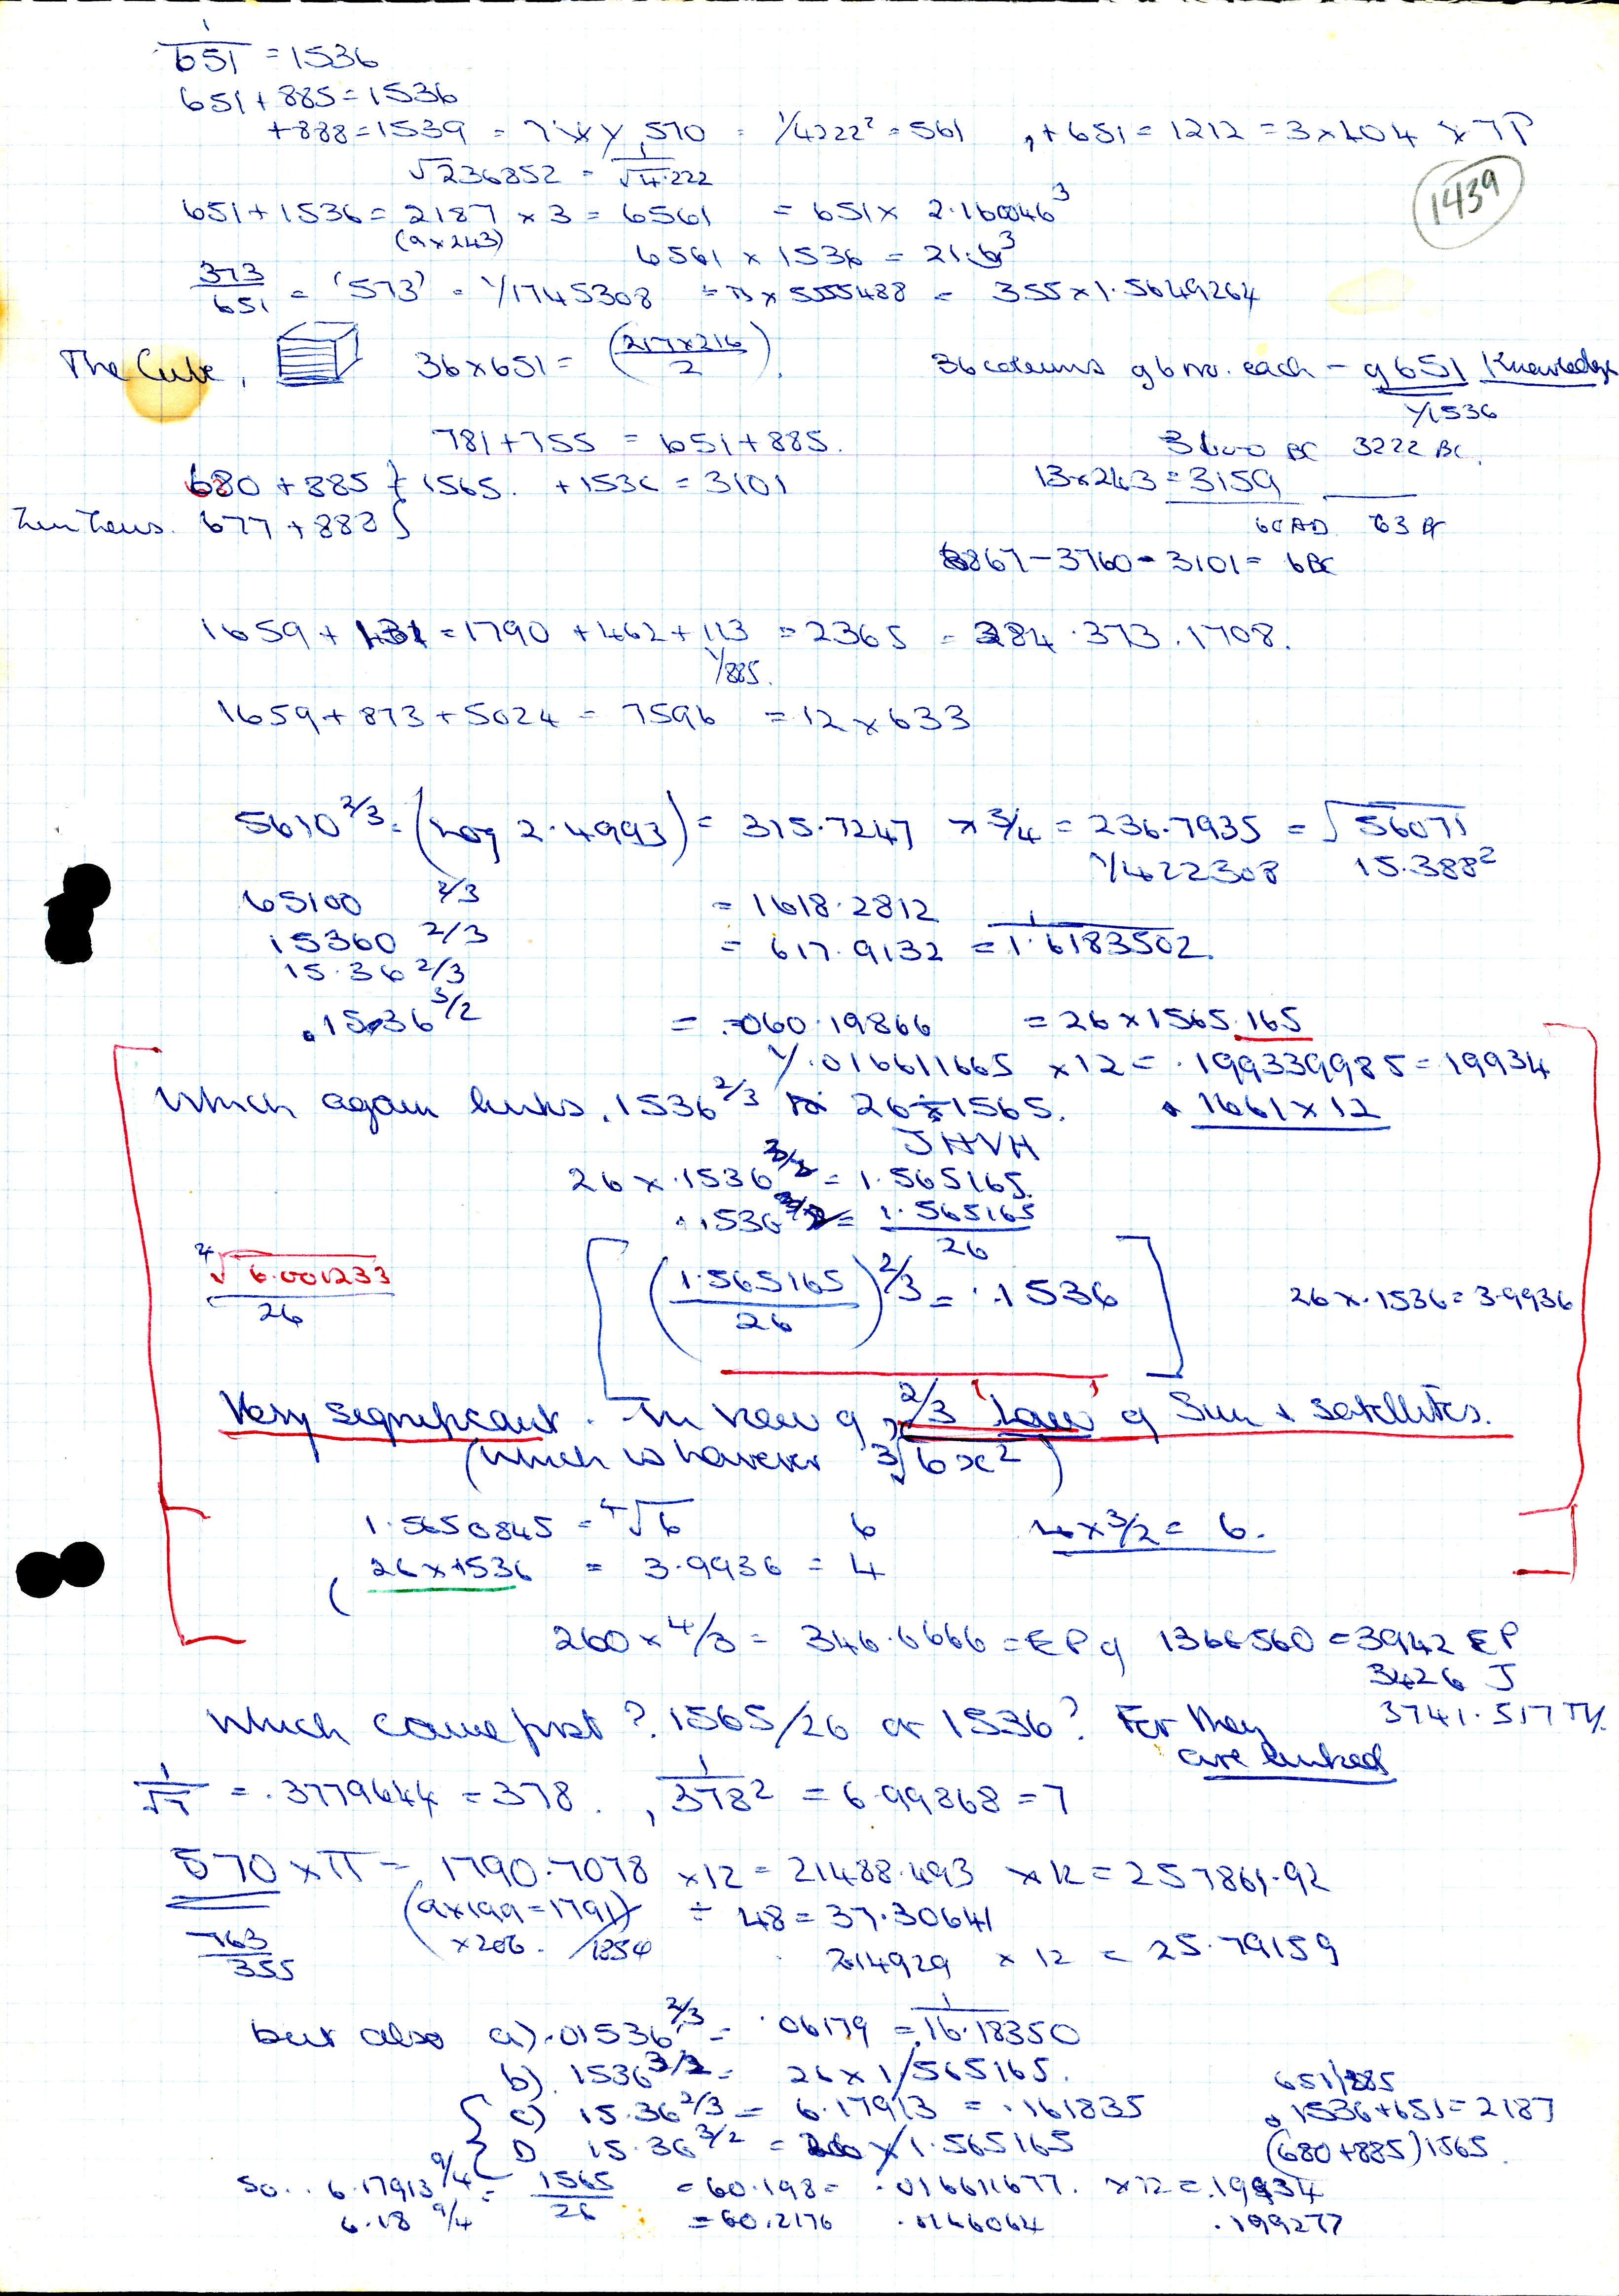 1/651 = 1536
651 + 885 = 1536
+888 = 1539 = 570 = 1/4222² = 561 , +651 = 1212 = 3 x 404
√236852 = 1/√4.222
1439
651 + 1536 = 2187 x 3 = 6561 = 651 x 2.160046³
(9x243) 6561 x 1536 = 21.6³
373/651 = '573' = 1/1745308 = 355 x 1.5649264
The Cube, 36 x 651 = (217x216/2) 36 columns of 6 no. each - of 651 Knowledge
1/1536
781 + 755 = 651 + 885. BC 3222 BC.
680 + 885 } 1565. + 1536 = 3101 13 x 243 = 3159
677 + 888 } 60 AD
- 3760 - 3101 = 6BC
1659 + 131 = 1790 + 462 + 113 = 2365 = 284.373.1708.
1/885.
1659 + 873 + 5024 = 7596 = 12 x 633
5610^2/3 = (Log 2.4993) = 315.7247 x 3/4 = 236.7935 = √56071
1/422308 15.388²
65100 2/3 = 1618.2812
15360 2/3 = 617.9132 = 1/1.6183502.
15.36 2/3
.1536^3/2 = .060.19866 = 26 x 1565.165
1/.016611665 x 12 = .199339985 = 19934
Which again links .1536^2/3 to 26 ÷ 1565. .1661 x 12
JHVH
26 x .1536^3/2 = 1.565165.
.1536^3/2 = 1.565165/26
⁴√6.001233/26 [(1.565165/26)^2/3 = .1536] 26 x .1536 = 3.9936
Very significant. In view of 2/3 'Law' of Sun & satellites.
(which is however ³√6x²)
1.5650845 = ⁴√6 6 4 x 3/2 = 6.
(26 x .1536 = 3.9936 = 4
260 x 4/3 = 346.6666 = EP of 1366560 = 3942 EP
3426 J
3741.517 TY.
Which came first? 1565/26 or 1536? For they
are linked
1/√7 = .3779644 = 378. , 1/378² = 6.99868 = 7
570 x π = 1790.7078 x 12 = 21488.493 x 12 = 257861.92
(9x199 = 1791) ÷ 48 = 37.30641
763/355 x 206. 214929 x 12 = 25.79159
but also a) .01536^2/3 = .06179 = 1/16.18350
b) .1536^3/2 = 26 x 1/565165. 651/885
{ c) 15.36^2/3 = 6.17913 = .161835 .1536 + 651 = 2187
{ D 15.36^3/2 = 26 x 1.565165 (680+885) 1565.
So.. 6.17913^9/4 = 1565/26 = 60.198 = .016611677. x 12 = .19934
6.18^9/4 = 60.2176 .0166064 .199277